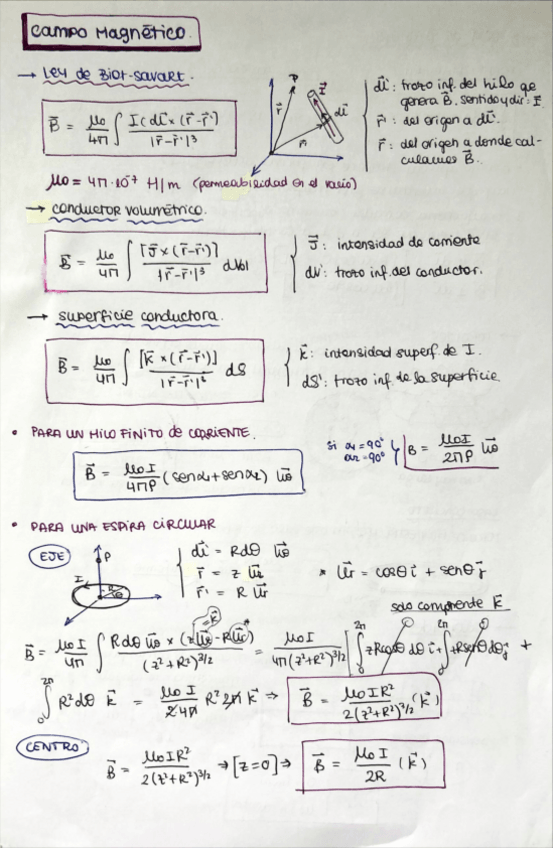 CAMPO MAGNÉTICO.
→ LEY de BIOT-SAVART.
B⃗ = μ₀/4π ∫ I(dl⃗ × (r⃗-r⃗'))/|r⃗-r⃗'|³
P
r⃗
I⃗
dl⃗
r⃗'
dl⃗: trozo inf. del hilo que
genera B⃗. sentido y dir: I⃗
r⃗': del origen a dl⃗.
r⃗: del origen a donde cal-
culamos B⃗.
μ₀ = 4π·10⁻⁷ H/m (permeabilidad en el vacío)
→ conductor volumétrico.
B⃗ = μ₀/4π ∫ [J⃗ × (r⃗-r⃗')]/|r⃗-r⃗'|³ dVol
J⃗: intensidad de corriente
dV': trozo inf. del conductor.
→ superficie conductora.
B⃗ = μ₀/4π ∫ [K⃗ × (r⃗-r⃗')]/|r⃗-r⃗'|³ dS
K⃗: intensidad superf. de I.
dS': trozo inf. de la superficie
• PARA UN HILO FINITO de CORRIENTE.
B⃗ = μ₀I/4πρ (senα₁+senα₂) u⃗θ
si α₁=90°
α₂=90°
B = μ₀I/2πρ u⃗θ
• PARA UNA ESPIRA CIRCULAR
EJE
P
I
dl⃗ = Rdθ u⃗θ
r⃗ = z u⃗z
r⃗' = R u⃗r
* u⃗r = cosθ i⃗ + senθ j⃗
= k⃗
solo componente k⃗
B⃗ = μ₀I/4π ∫ Rdθ u⃗θ × (z u⃗z - R u⃗r)/(z²+R²)^3/2 = μ₀I/4π(z²+R²)^3/2 [∫₀^2π zRcosθ dθ i⃗ + ∫₀^2π zRsenθ dθ j⃗ +
∫₀^2π R²dθ k⃗ = μ₀I/4π R² 2π k⃗ → B⃗ = μ₀IR²/2(z²+R²)^3/2 (k⃗)
CENTRO
B⃗ = μ₀IR²/2(z²+R²)^3/2 → [z=0] → B⃗ = μ₀I/2R (k⃗)